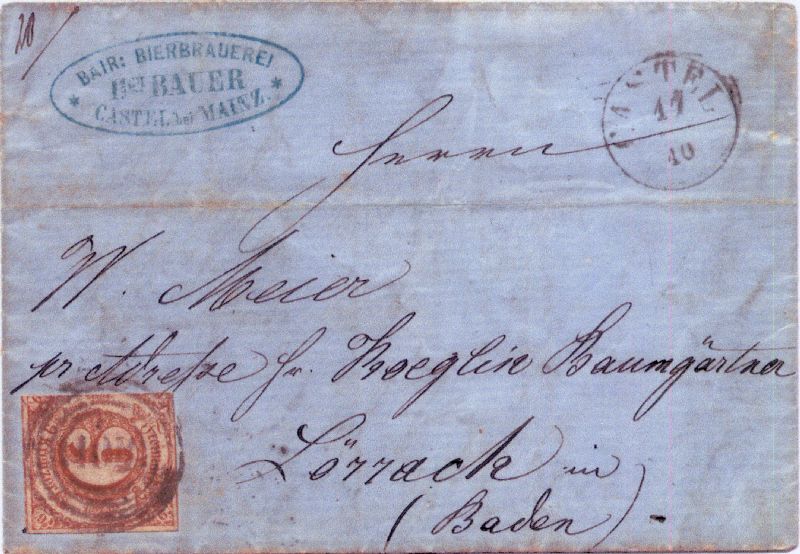 20
BAIR: BIERBRAUEREI
BAUER
CASTEL bei MAINZ.
CASTEL
17
10
Herrn
W. Meier
pr Adresse Hr. Koeglin Baumgärtner
Lörrach in
(Baden)